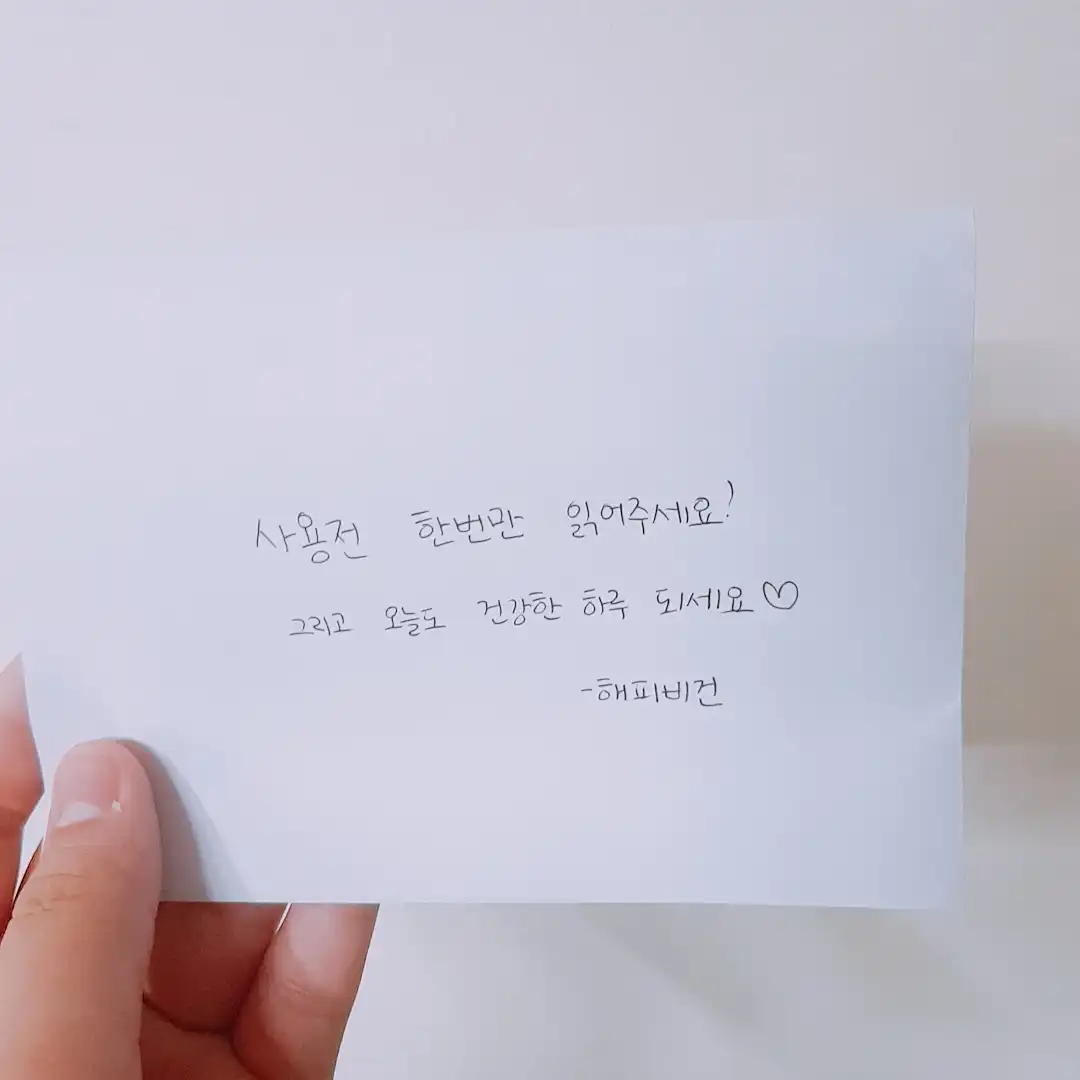 사용전 한번만 읽어주세요!
그리고 오늘도 건강한 하루 되세요♡
-해피비건